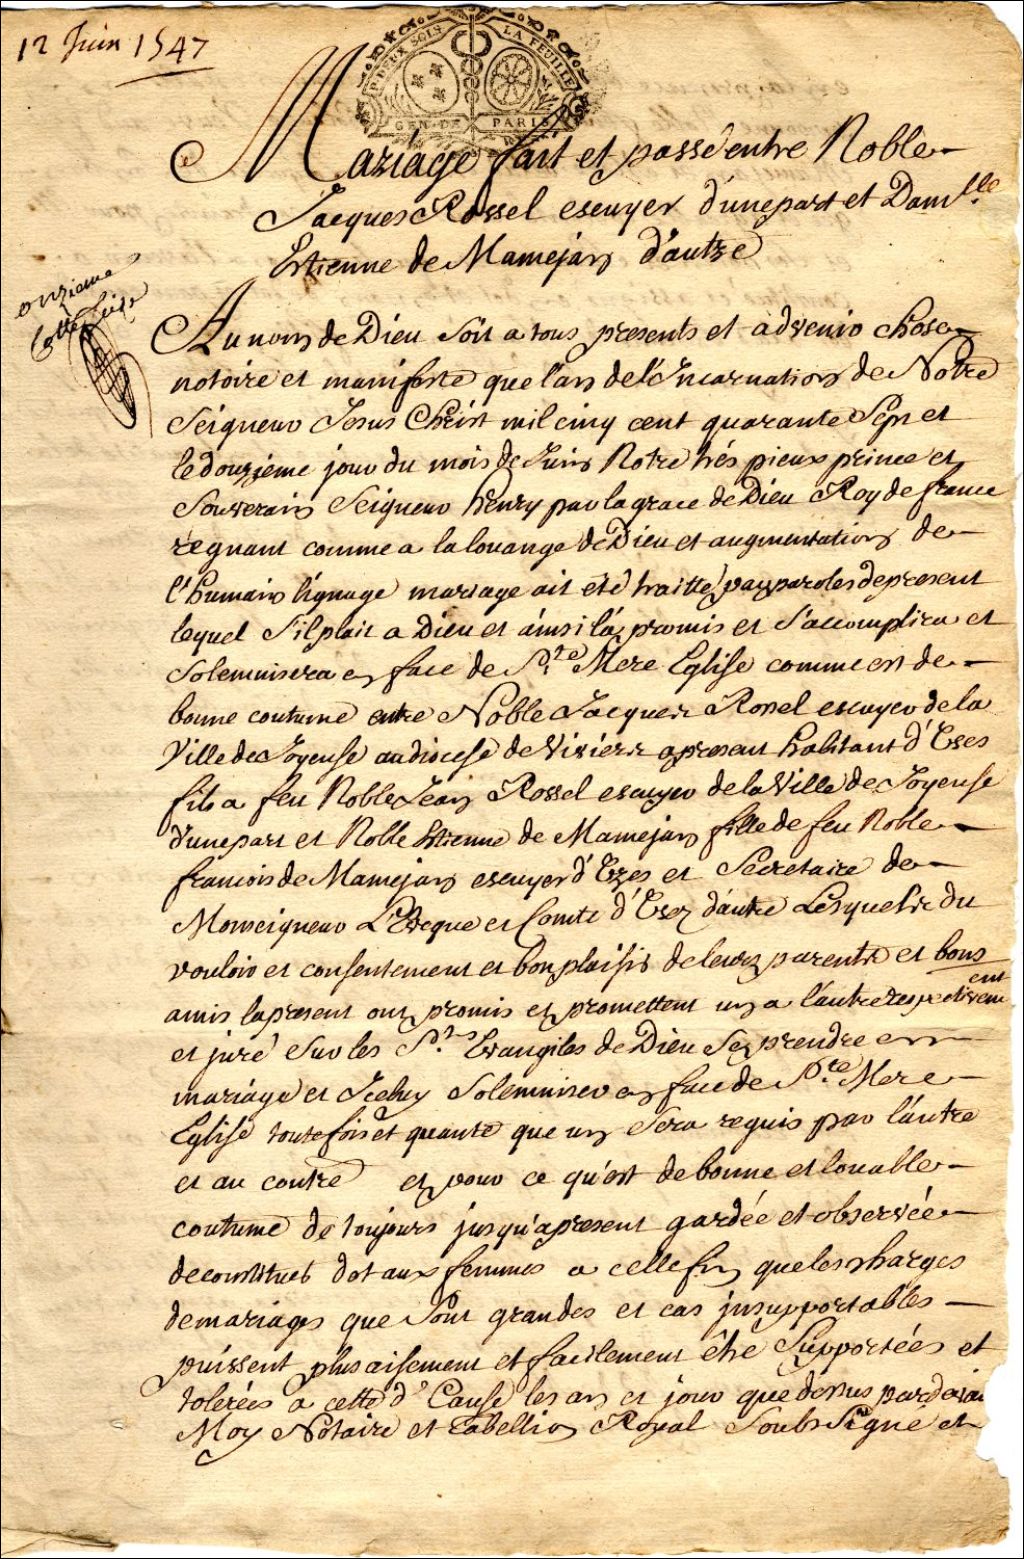 12 Juin 1547
P. DEUX SOLS LA FEUILLE
GEN. DE PARIS
Mariage fait et passé entre Noble
Jacques Rossel escuyer d'une part et Dam.lle
Estienne de Mamejan d'autre
onzieme
Cotte
Au nom de Dieu soit a tous presents et advenir chose
notoire et manifeste que l'an de l'Incarnation de Notre
Seigneur Jesus Christ mil cinq cent quarante Sept et
le douzième jour du mois de Juin Notre trés pieux prince et
Souverain Seigneur henry par la grace de Dieu Roy de france
regnant comme a la louange de Dieu et augmentation de
l'humain lignage mariage ait eté traitté par paroles de present
lequel s'il plait a Dieu et áinsi l'a promis et s'accomplira et
Solemnisera en face de S.te Mere Eglise comme est de
bonne coutume entre Noble Jacques Rossel escuyer de la
Ville de Joyeuse au diocese de Viviers apresent habitant d'Uses
fils a feu Noble Jean Rossel escuyer de la Ville de Joyeuse
d'une part et Noble Estienne de Mamejan fille de feu Noble
francois de Mamejan escuyer d'Uzes et Secretaire de
Monseigneur L'Eveque et Comte d'Usez d'autre Lesquels du
vouloir et consentement et bon plaisir de leurs parents et bons
amis la present ont promis et promettent un a l'autre respectivement
et juré sur les S.ts Evangiles de Dieu se prendre en
mariage et Iceluy Solemniser en face de S.te Mere
Eglise toutefois et quante que un sera requis par l'autre
et au contre et pour ce qu'est de bonne et louable
coutume de toujours jusqu'apresent gardée et observée
de constituer dot aux femmes a celle fin que les charges
de mariage que sont grandes et cas insupportables
puissent plus aisement et facilement être Supportées et
tolerées a cette d.e Cause les an et jour que dessus par devant
Moy Notaire et Tabellion Royal Soubs Signé et